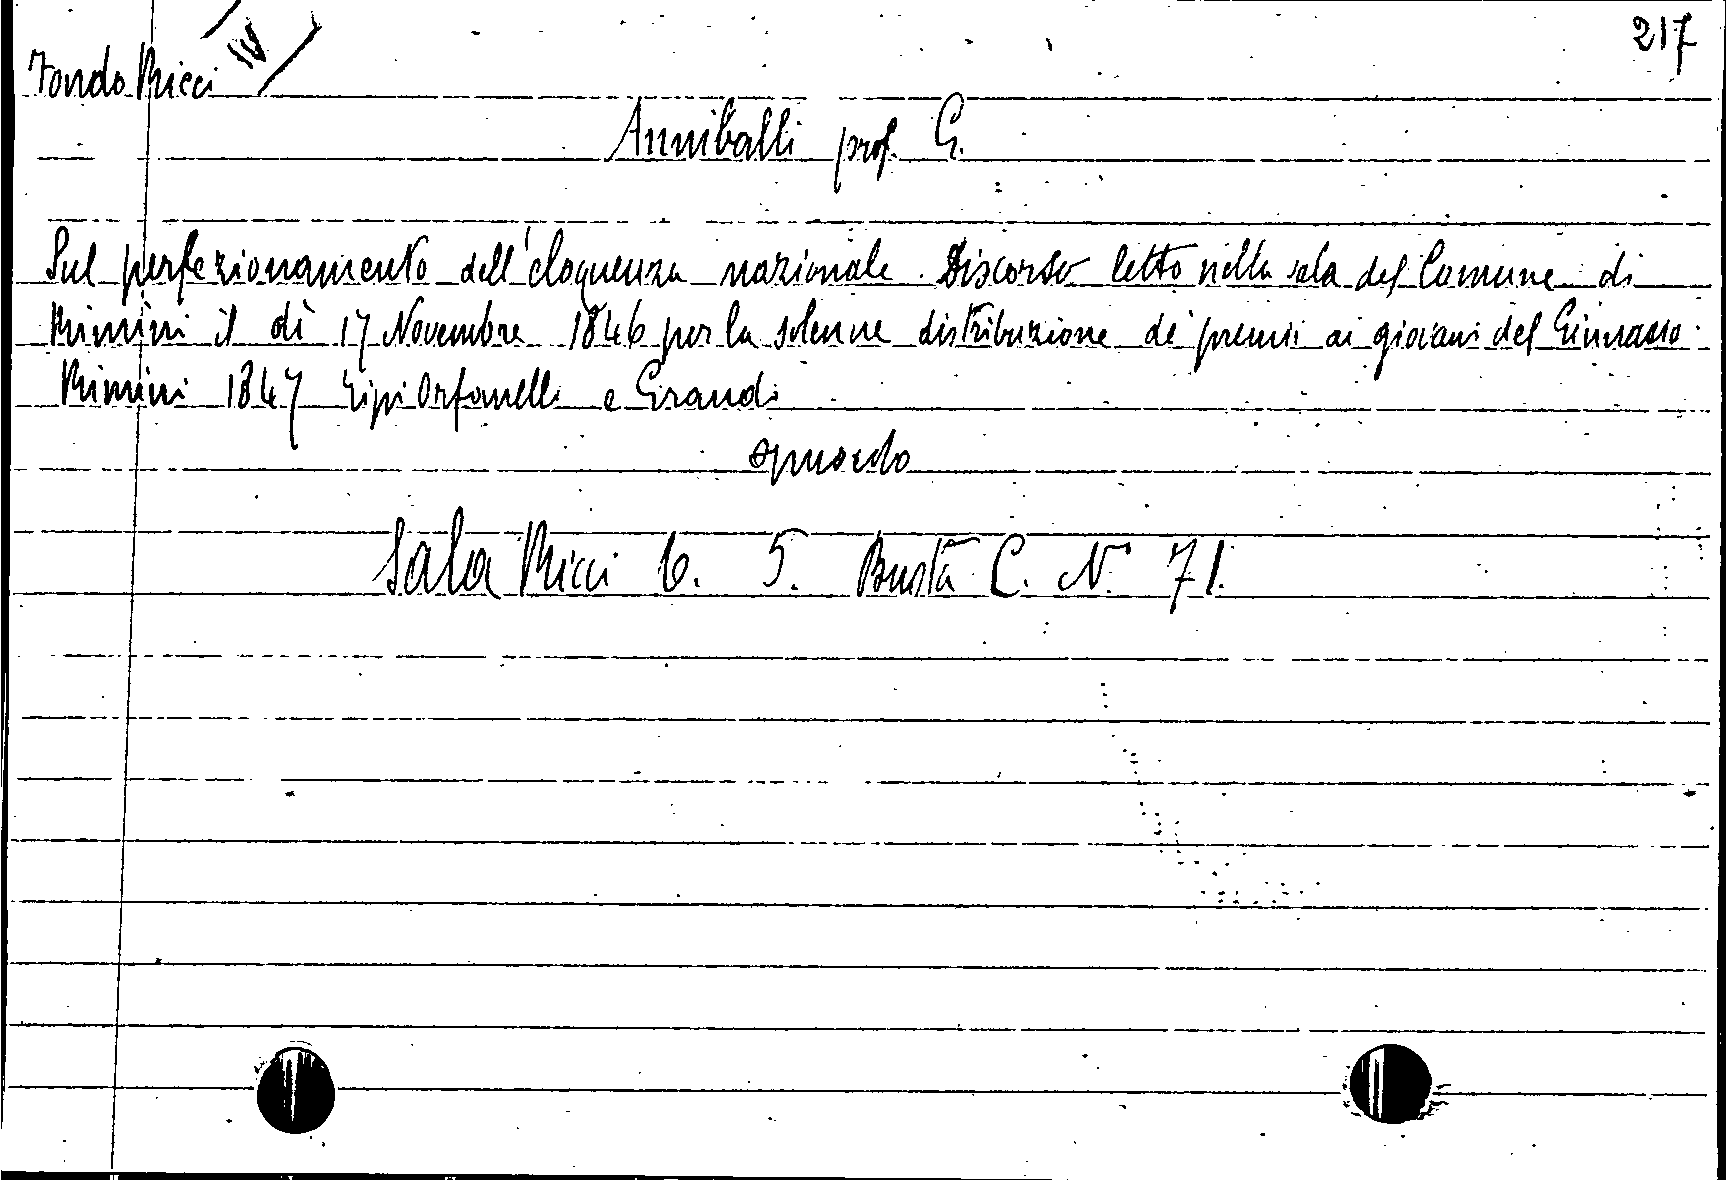 217
Fondo Ricci IV
Anniballi prof. G.
Sul perfezionamento dell'eloquenza nazionale. Discorso letto nella sala del Comune di
Rimini il dì 17 Novembre 1846 per la solenne distribuzione de' premi ai giovani del Ginnasio.
Rimini 1847 Tipi Orfanelli e Grandi
opuscolo
Sala Ricci b. 5. Busta C. N. 71.